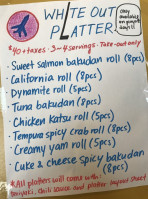 WHITE OUT
PLATTER
only
available
on
$40+taxes · 3-4 servings · Take-out only
· Sweet salmon bakudan roll (8pcs)
· California roll (8pcs)
· Dynamite roll (5pcs)
· Tuna bakudan (8pcs)
· Chicken katsu roll (5pcs)
· Tempura spicy crab roll (8pcs)
· Creamy yam roll (5pcs)
· Cuke & cheese spicy bakudan
(8pcs)
*All platters will come with:
teriyaki, chili sauce and platter